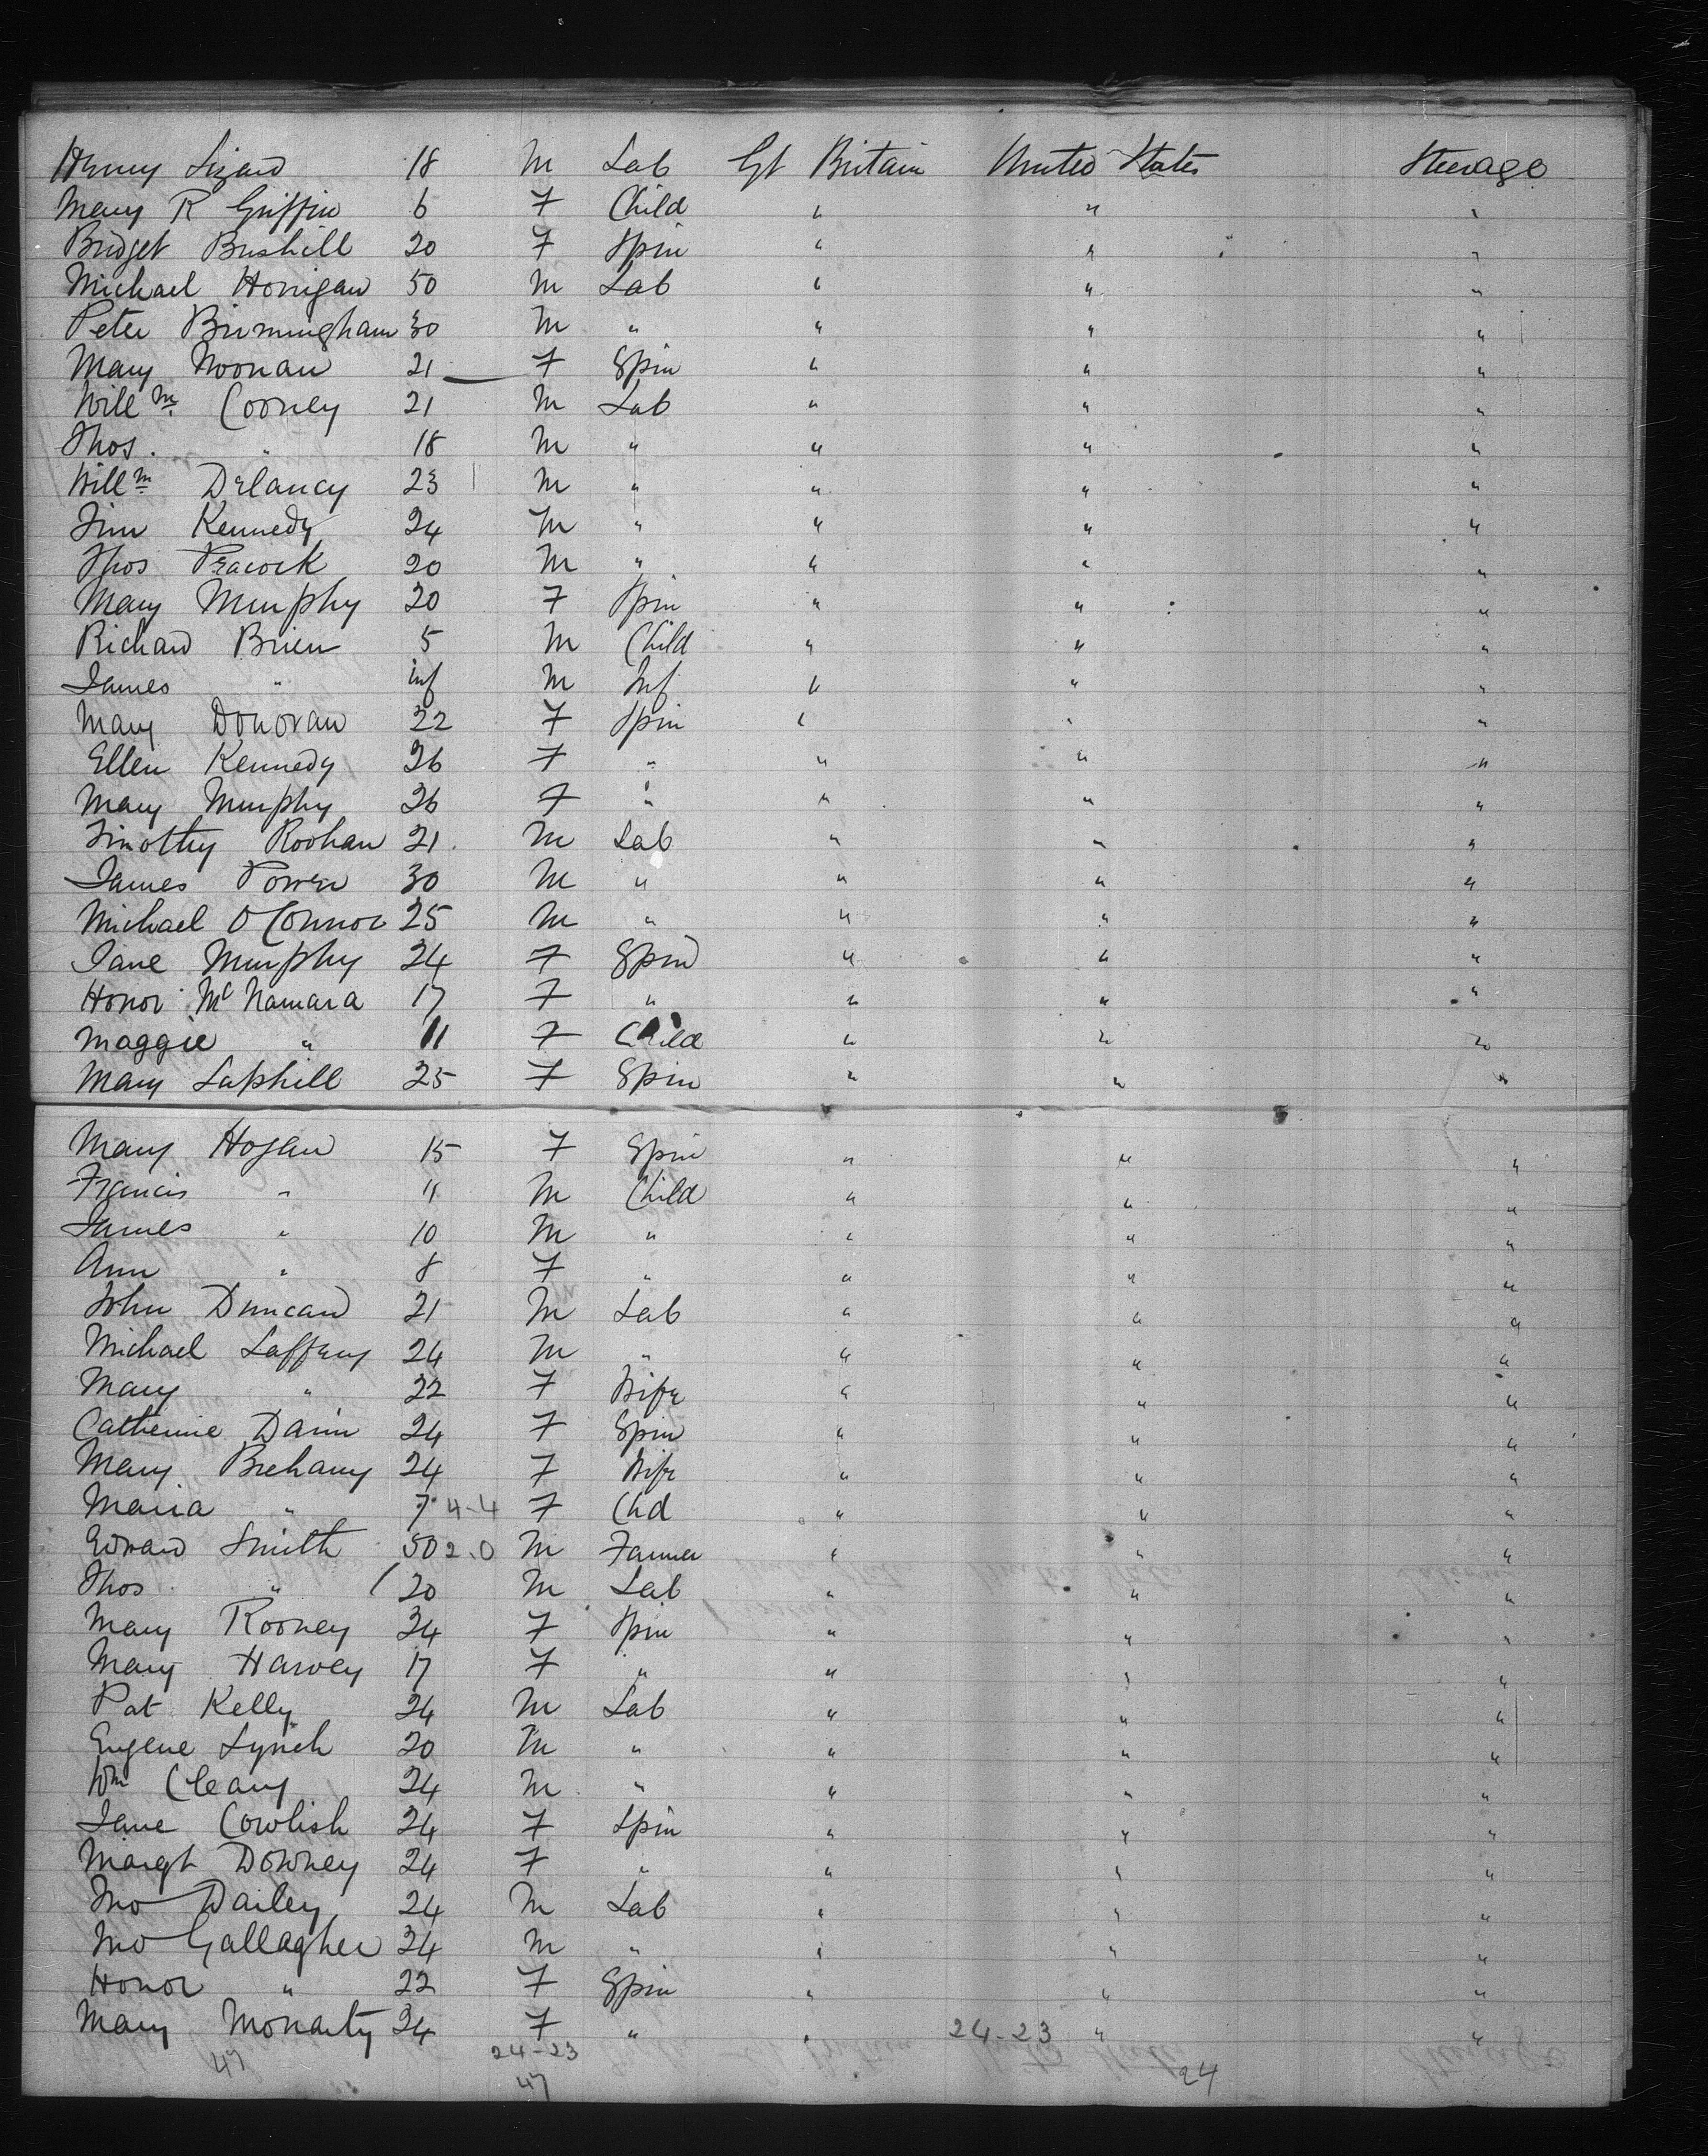 Henry Lizard 18 M Lab Gt Britain United States Steerage
Mary R Griffin 6 F Child " " "
Bridget Bushill 20 F Spin " " "
Michael Horrigan 50 M Lab " " "
Peter Birmingham 30 M " " " "
Mary Noonan 21 F Spin " " "
Willm Cooney 21 M Lab " " "
Thos. " 18 M " " " "
Willm Delancy 23 M " " " "
Jim Kennedy 24 M " " " "
Thos Peacock 20 M " " " "
Mary Murphy 20 F Spin " " "
Richard Brien 5 M Child " " "
James " inf M Inf " " "
Mary Donovan 22 F Spin " " "
Ellen Kennedy 26 F " " " "
Mary Murphy 26 F " " " "
Timothy Roohan 21 M Lab " " "
James Power 30 M " " " "
Michael O Connor 25 M " " " "
Jane Murphy 24 F Spin " " "
Honor McNamara 17 F " " " "
Maggie " 11 F Child " " "
Mary Laphill 25 F Spin " " "
Mary Hogan 15 F Spin " " "
Francis " 11 M Child " " "
James " 10 M " " " "
Ann " 8 F " " " "
John Duncan 21 M Lab " " "
Michael Laffery 24 M " " " "
Mary " 22 F Wife " " "
Catherine Dann 24 F Spin " " "
Mary Brehany 24 F Wife " " "
Maria " 7 4-4 F Chd " " "
Edward Smith 50 2.0 M Farmer " " "
Thos " 20 M Lab " " "
Mary Rooney 24 F Spin " " "
Mary Harvey 17 F " " " "
Pat Kelly 24 M Lab " " "
Eugene Lynch 20 M " " " "
Wm Cleary 24 M " " " "
Jane Cowlish 24 F Spin " " "
Margt Downey 24 F " " " "
Jno Dailey 24 M Lab " " "
Jno Gallagher 24 M " " " "
Honor " 22 F Spin " " "
Mary Moriarty 24 F " " 24-23 " "
47 24-23 24
47